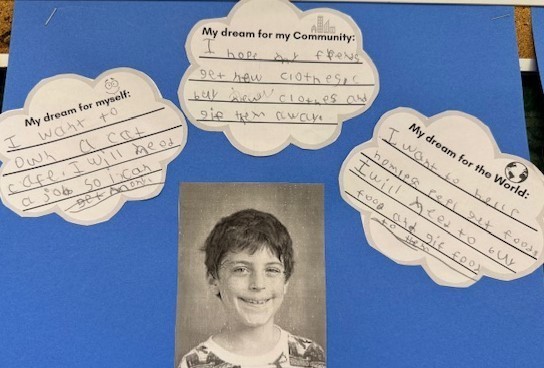 My dream for myself:
I want to
own a cat
cafe. I will need
a job so I can
get mony.
My dream for my Community:
I hope my frens
get new clothes.
buy new clothes and
gif them away.
My dream for the World:
I want to help
homless get food
I will need to buy
food and gif food
to them